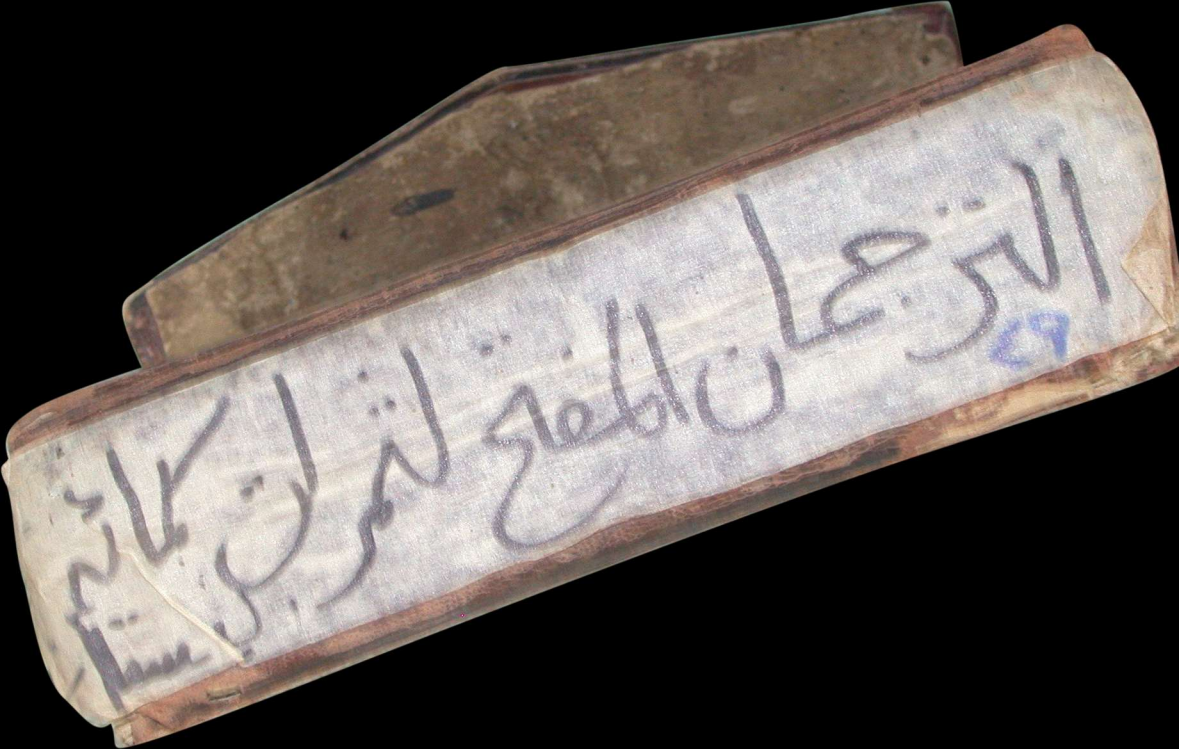 الترجمان المفتح لثمرات كمائم
٢٩